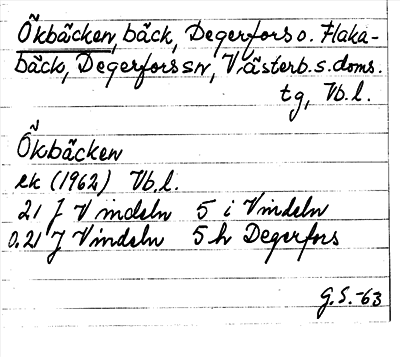 Ökbäcken, bäck, Degerfors o. Flaka-
bäck, Degerfors sn, Västerb. s. doms.
tg, Vb. l.
Ökbäcken
ek (1962) Vb. l.
21 J Vindeln 5 i Vindeln
0.21 J Vindeln 5 h Degerfors
G.S.-63